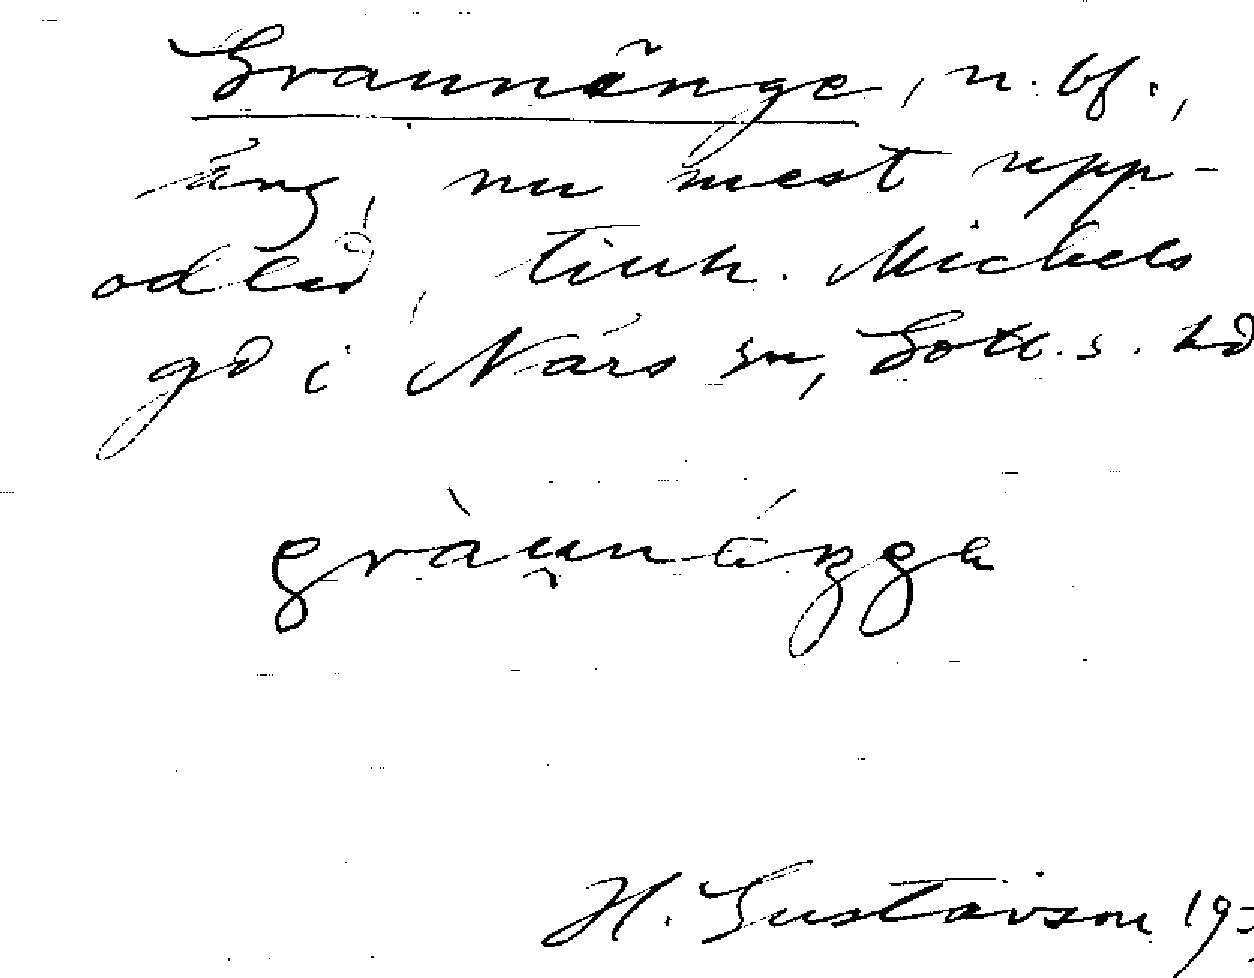 Graunänge, n. bf.,
äng, nu mest upp-
odlad, tillh. Michels
gd i Närs sn, Gotl. s. hd
gràu̯nǽŋge
H. Gustavson 193